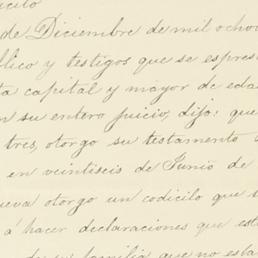 de Diciembre de mil ocho
blico y testigos que se espres
ta capital y mayor de eda
n su entero juicio, dijo: que
tres, otorgo su testamento
en veintiseis de Junio de
ueva otorgo un codicilo que
á hacer declaraciones que est
de su familia que no esta